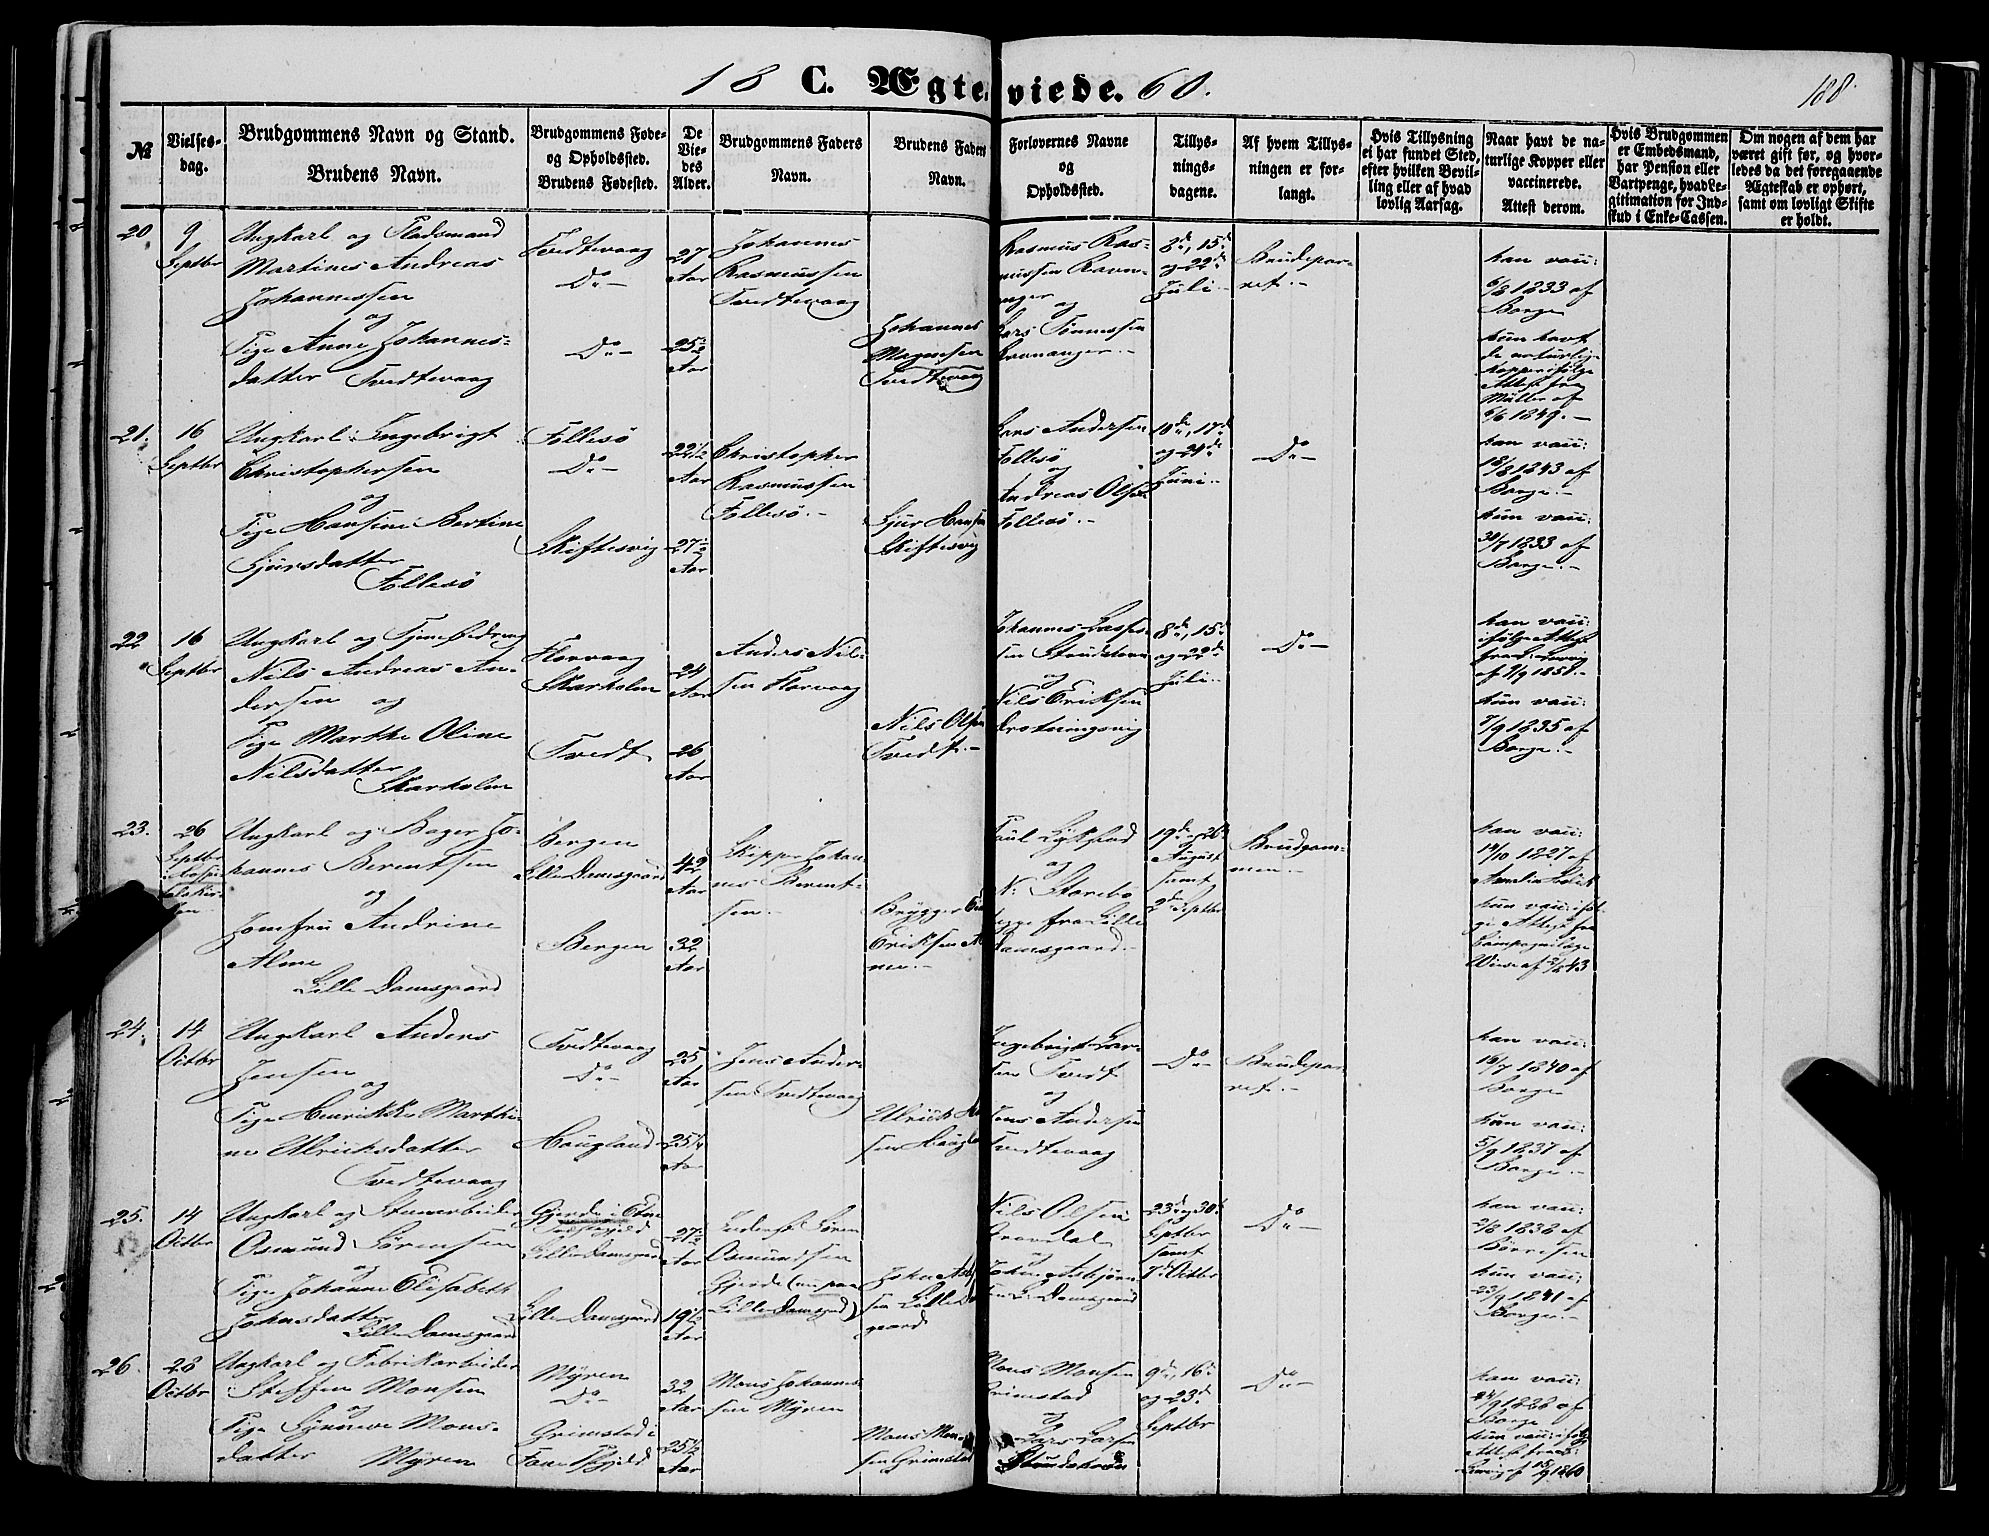 18 C. Ægteviede. 60.
188.
№
Vielses-
dag.
Brudgommens Navn og Stand.
Brudens Navn.
Brudgommens Føde-
og Opholdssted.
Brudens Fødested.
De
Vie-
des
Alder.
Brudgommens Faders
Navn.
Brudens Faders
Navn.
Forlovernes Navne
og
Opholdssted.
Tillys-
nings-
dagene.
Af hvem Tillys-
ningen er for-
langt.
Hvis Tillysning
ei har fundet Sted,
efter hvilken Bevil-
ling eller af hvad
lovlig Aarsag.
Naar havt de na-
turlige Kopper eller
vaccinerede.
Attest derom.
Hvis Brudgommen
er Embedsmand,
har Pension eller
Vartpenge, hvad Le-
gitimation for Ind-
skud i Enke-Cassen.
Om nogen af dem har
været gift før, og hvor-
ledes da det foregaaende
Ægteskab er ophørt,
samt om lovligt Skifte
er holdt.
20
9
Septbr
Ungkarl og Pladsmand
Martines Andreas
Johannessen
og
Pige Anne Johannes-
datter Tvedtevaag
Tvedtevaag
Do –
Do –
27
Aar
25½
Aar
Johannes
Rasmussen
Tvedtevaag
Johannes
Magnesen
Tvedtevaag
Rasmus Ras-
mussen Ravn-
anger
og
Lars Tönnessen
Ravnanger.–
8de, 15de
og 22de
Juli.–
Brudepar-
ret.–
han vacc:
6/8 1833 af
Borge
hun havt
de naturlige
Kopper ifölge
Attest fra
Müller af
6/6 1849.–
21.
16
Septbr
Ungkarl Ingebrigt
Christophersen
og
Pige Hansine Bertine
Sjursdatter
Follesö
Follesö
Do –
Skiftesvig
22½
Aar
27½
Aar
Christopher
Rasmussen
Follesö.–
Sjur Hansen
Skiftesvig
Lars Andersen
Follesö
og
Andreas Olsen
Follesö.–
10de, 17de
og 24de
Juni.–
Do –
han vacc:
18/8 1843 af
Borge.–
hun vacc:
30/7 1833 af
Borge.–
22
16
Septbr
Ungkarl og
Nils Andreas An-
dersen og
Pige Marthe Oline
Nilsdatter
Skarholm
Florvaag
Skarholm
Tvedt
24
Aar
26
Aar
Anders Nil-
sen Florvaag
Nils Olsen
Tvedt.–
Johannes Lasse-
sen Strudshavn
og
Nils Eriksen
Drotningsvig
8de, 15de
og 22de
Juli.–
Do –
han vacc:
ifölge Attest
hun vacc:
7/9 1835 af
Borge.–
23.
26
Septbr
Ungkarl og Bager Jo-
hannes Berentsen
og
Jomfru Andrine
Alme
Lille Damsgaard
Bergen
Lille Damsgaard
Bergen
42
Aar
32
Aar
Skipper Johan-
nes Berent-
sen.–
Brygger
Eriksen Al-
me.–
Paul
og
N: Storebö
begge fra Lille
Damsgaard.–
19de og 26de
August
samt
2de Septbr
Brudgom-
men.–
han vacc:
14/10 1827 af
hun vacc: iföl-
ge Attest fra
24.
14
Octbr
Ungkarl Anders
Jensen
og
Pige Henrikke Marthi-
ne Ulriksdatter
Tvedtevaag
Tvedtevaag
Do –
Haugland
25
Aar
25¼
Aar
Jens Ander-
sen Tvedtevaag
Ulrik
sen
Ingebrigt Lar-
sen Tvedt
og
Jens Andersen
Tvedtevaag
Do –
Brudepar-
ret.–
han vacc:
16/7 1840 af
Borge
hun vacc:
5/9 1837 af
Borge.–
25.
14
Octbr
Ungkarl og Steenarbeider
Osmund Sörensen
og
Pige Johanne Elisabeth
Johnsdatter
Lille Damsgaard
Gjerde i Etne
Lille Damsgaard
Lille Damsgaard
27½
Aar
19½
Aar
Inderst Sören
Osmundsen
Gjerde (nu paa
Lille Damsgrd)
John Asbj
sen Lille D
gaard
Nils Olsen
Gravdal
og
John Asbjörn-
sen L: Damsgaard
23de og 30de
Septbr
samt
7de Octbr
Do –
han vacc:
2/8 1838 af
Börresen
hun vacc:
23/9 1841 af
Borge.–
26.
28
Octbr
Ungkarl og Fabrikarbeider
Steffen Monsen
og
Pige Synneve Mons-
datter Myren
Myren
Do –
Grimstad i
Fane Prgjeld
32
Aar
25½
Aar
Mons Johannes-
sen Myren
Mons Mon-
sen Grimstad
Mons Monsen
Grimstad
og
Lars Larsen
Strudshavn
9de, 16de
og 23de
Septbr
Do –
han vacc:
24/9 1828 af
Borge
hun vacc: ifölge